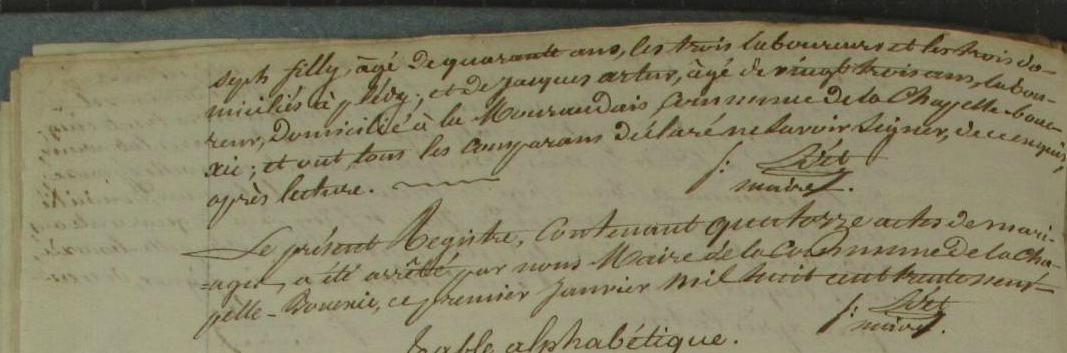 seph filly, âgé de quarante ans, les trois laboureurs et les trois do-
miciliés à plévy; et de jacques artur, âgé de vingt trois ans, labou-
reur, Domicilié à la Mouraudais Commune de la Chappelle-boue-
xic; et ont tous les comparans déclaré ne savoir signer, de ce enquis,
après lecture.
f:
maire.
Le présent Registre, Contenant quatorze actes de mari-
=ages, a été arrêté par nous Maire de la Commune de la Cha-
pelle-Bouexic, ce premier janvier mil huit cent trente neuf
f:
maire.
Table alphabétique.